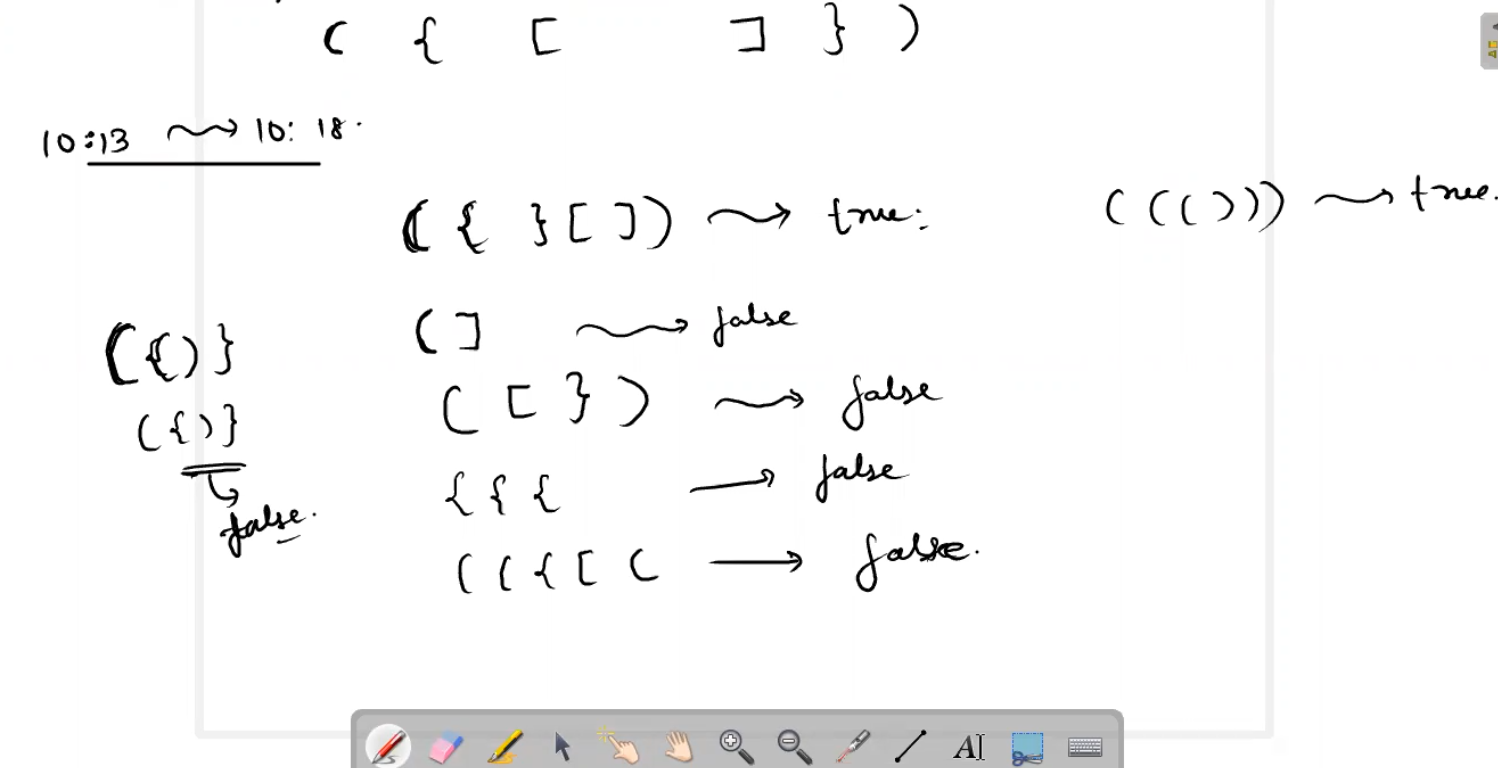 ( { [ ] } )
10:13 ⟿ 10: 18.
( { } [ ] ) ⟿ true.
( ( ( ) ) ) ⟿ true.
( ] ⟿ false
( { ) }
( [ } ) ⟿ false
( { ) }
{ { { → false
false.
( ( { [ ( → false.
AI